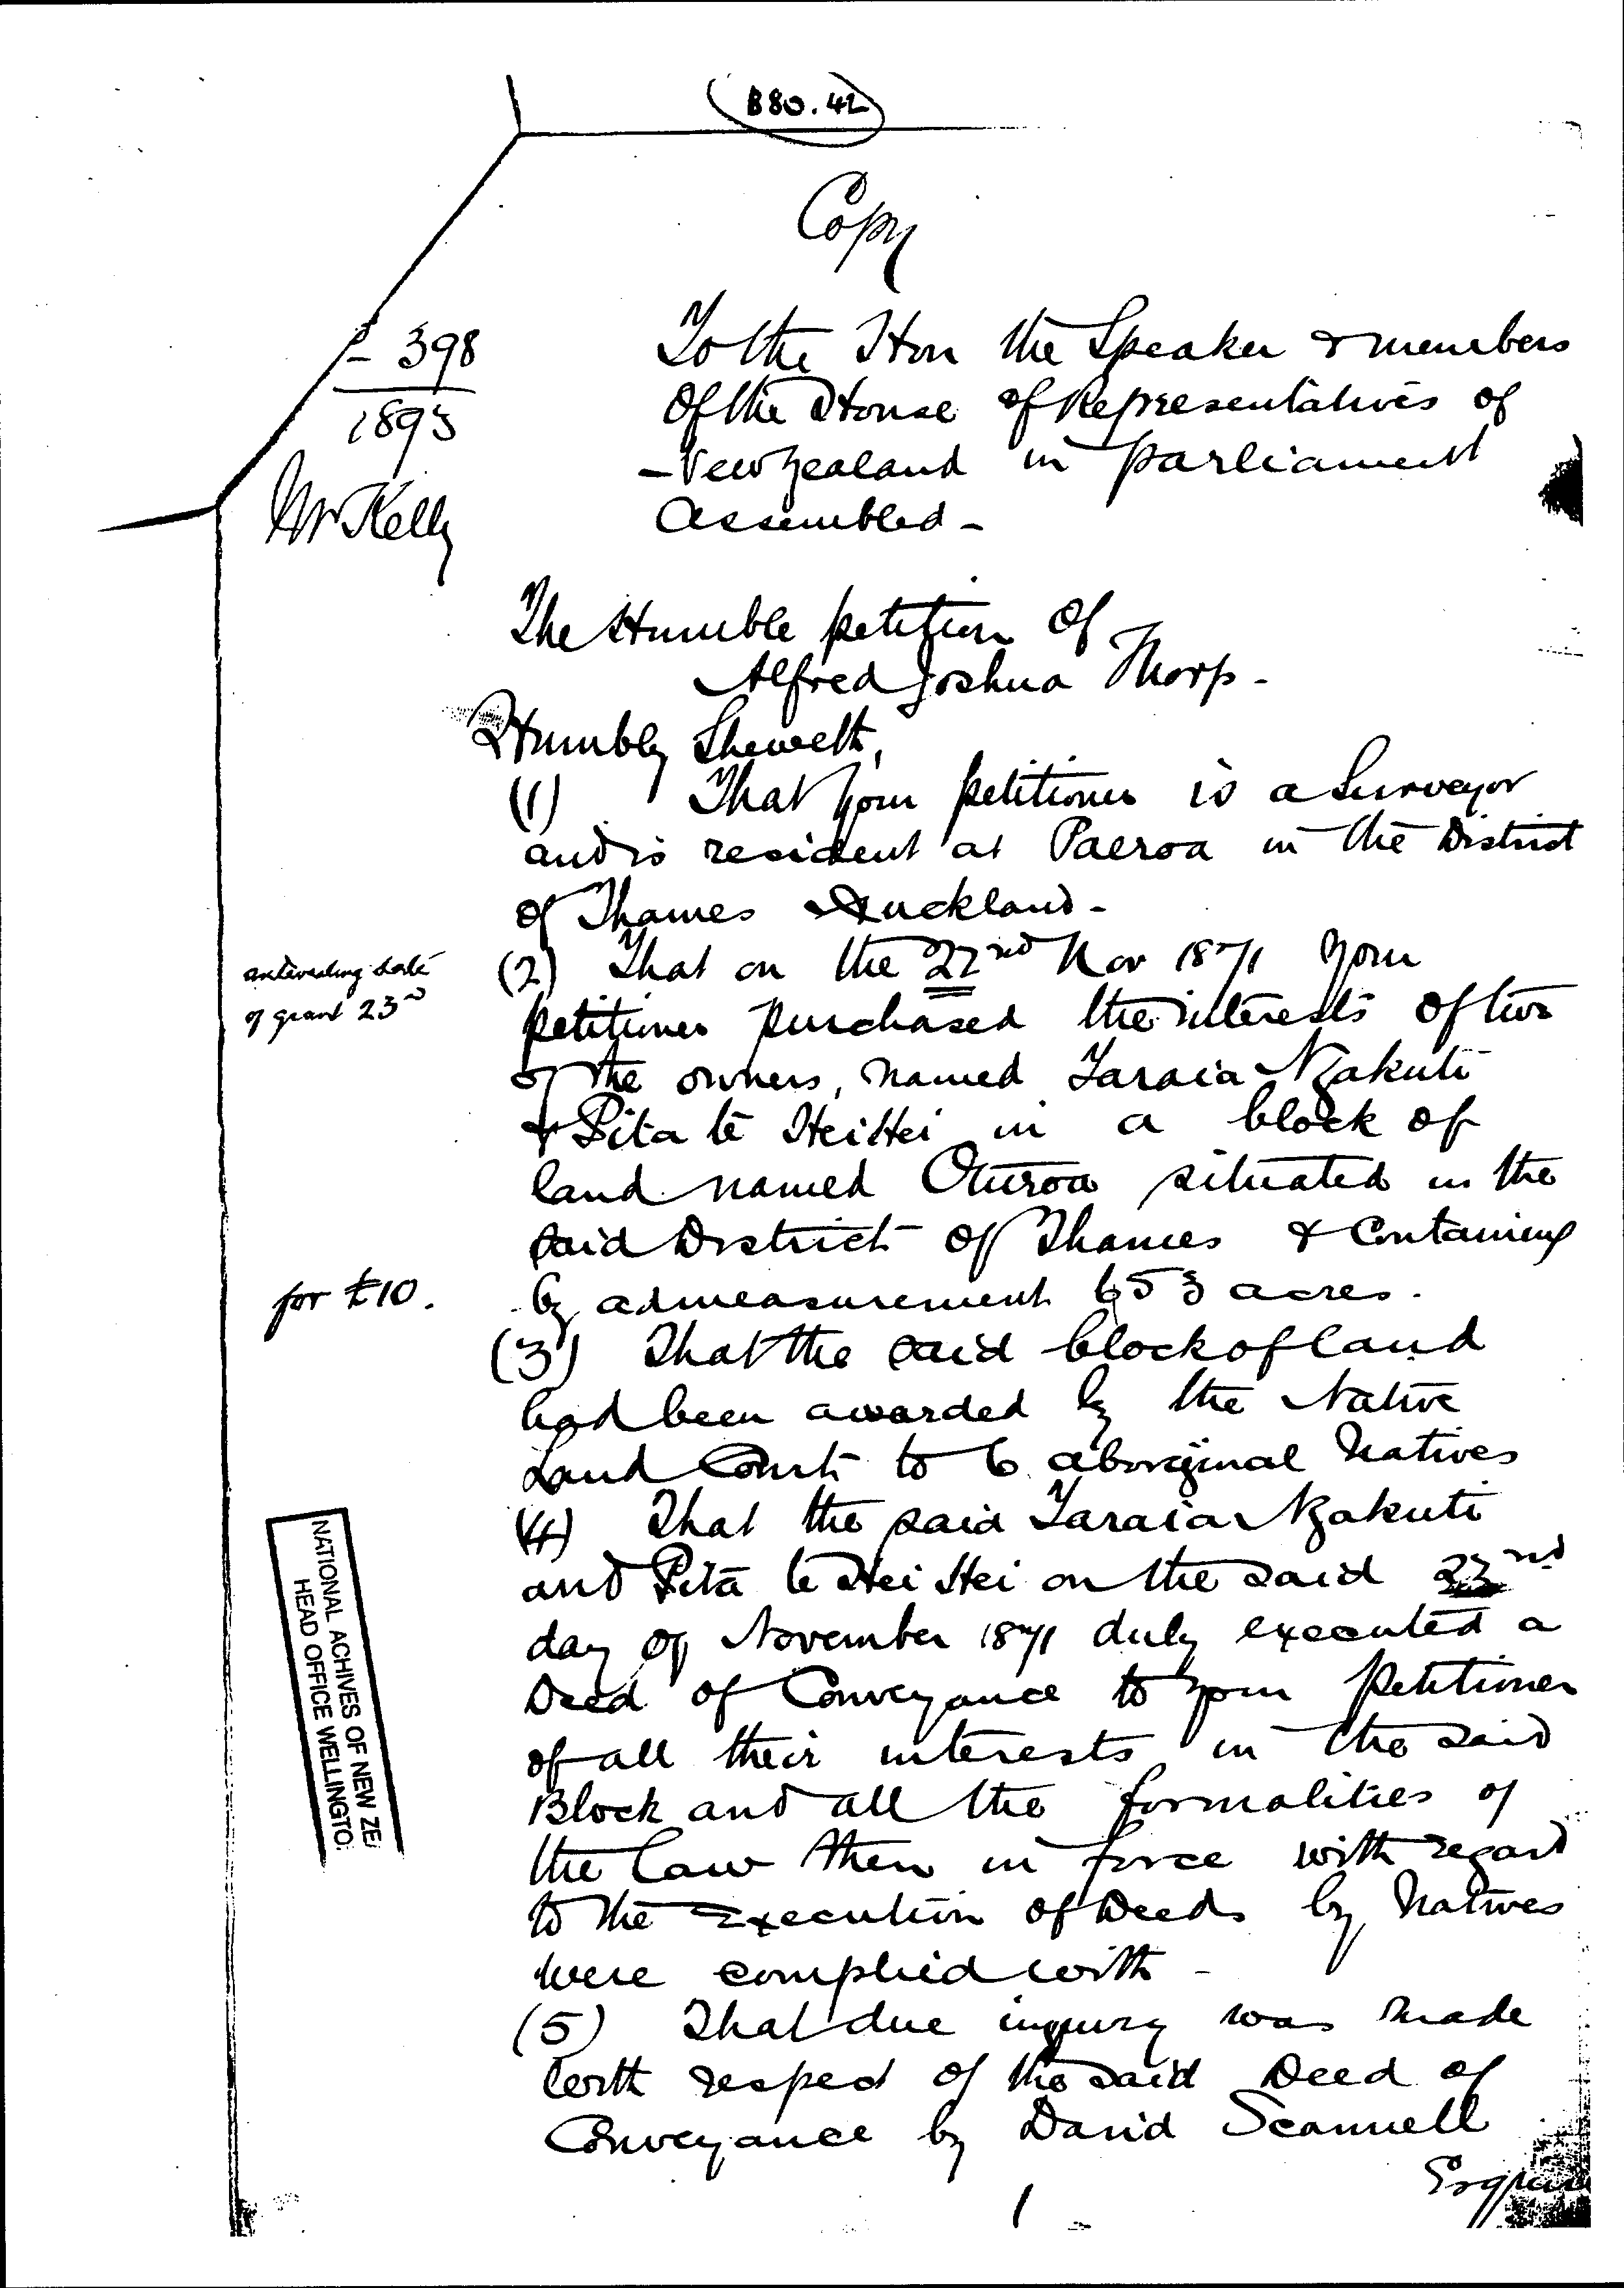 B80.42
Copy
P 398
1893
Mr Kelly
To the Hon the Speaker & members
Of the House of Representatives of
New Zealand in parliament
Assembled -
The Humble petition Of
Alfred Joshua Thorp -
Humbly Sheweth,
(1) That your petitioner is a Surveyor
and is resident at Paeroa in the District
of Thames Auckland -
antevesting date
of grant 23rd
(2) That on the 22nd Nov 1871 your
petitioner purchased the interests Of two
of the owners, named Taraia Ngakuti
& Pita te HeiHei in a block of
land named Oturoa situated in the
said District Of Thames & Containing
for £10.
by admeasurement 653 acres.
(3) That the said block of land
had been awarded by the Native
Land Court to 6 aboriginal Natives
(4) That the said Taraia Ngakuti
and Pita te Hei Hei on the said 23nd
day of November 1871 duly executed a
Deed of Conveyance to your petitioner
of all their interests in the said
Block and all the formalities of
the law then in force with regard
to the Execution Of Deeds by Natives
were complied with -
(5) That due inquiry was made
with respect of the said Deed of
Conveyance by David Scannell
Esquire
1
NATIONAL ACHIVES OF NEW ZE
HEAD OFFICE WELLINGTO